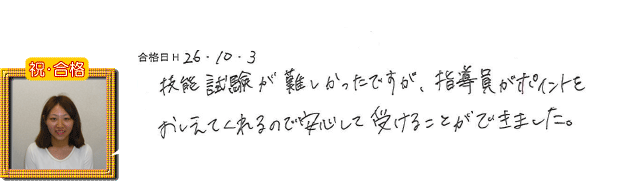 祝・合格
合格日H 26・10・3
技能試験が難しかったですが、指導員がポイントを
おしえてくれるので安心して受けることができました。